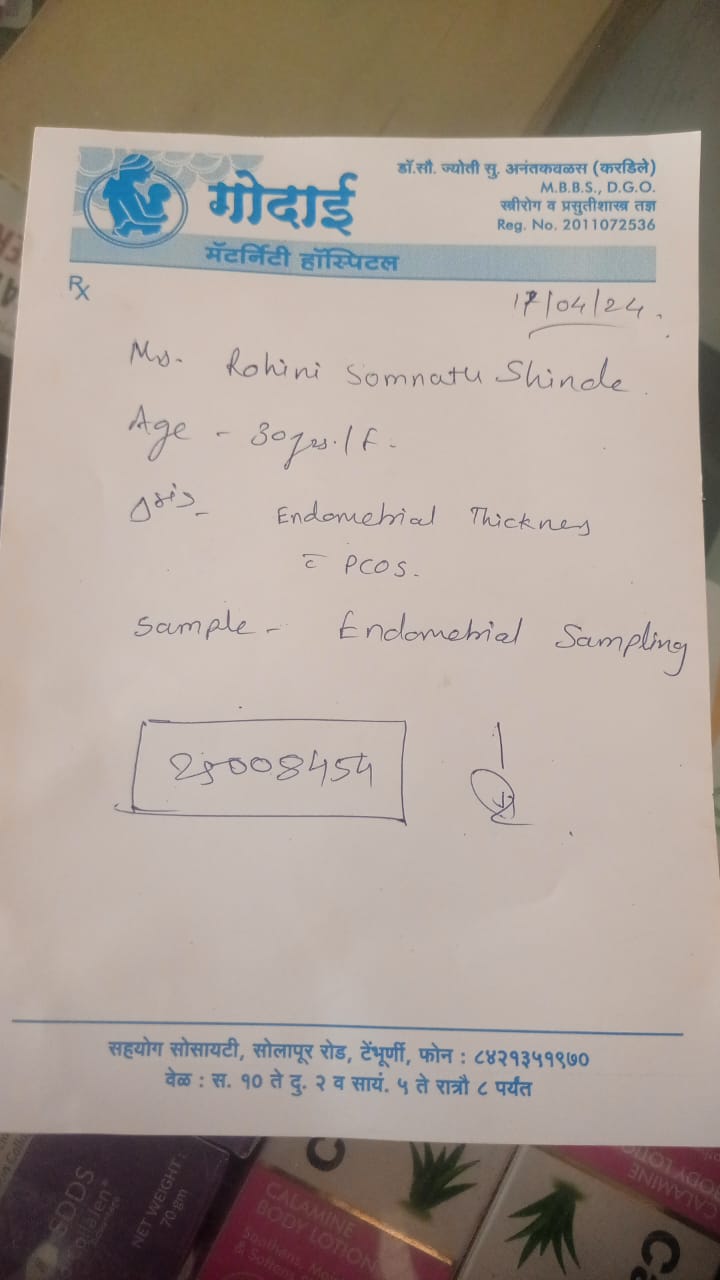 डॉ.सौ. ज्योती सु. अनंतकवळस (करडिले)
M.B.B.S., D.G.O.
स्त्रीरोग व प्रसुतीशास्त्र तज्ञ
Reg. No. 2011072536
गोदाई
मॅटर्निटी हॉस्पिटल
Rx
17/04/24.
Ms. Rohini Somnath Shinde.
Age - 30 yrs./F.
Endometrial Thickness
c̄ PCOS.
Sample - Endometrial Sampling
25008454
सहयोग सोसायटी, सोलापूर रोड, टेंभूर्णी, फोन : ८४२१३५१९७०
वेळ : स. १० ते दु. २ व सायं. ५ ते रात्रौ ८ पर्यंत
SDDS
NET WEIGHT:
70 gm
CALAMINE
BODY LOTION
CALAMINE